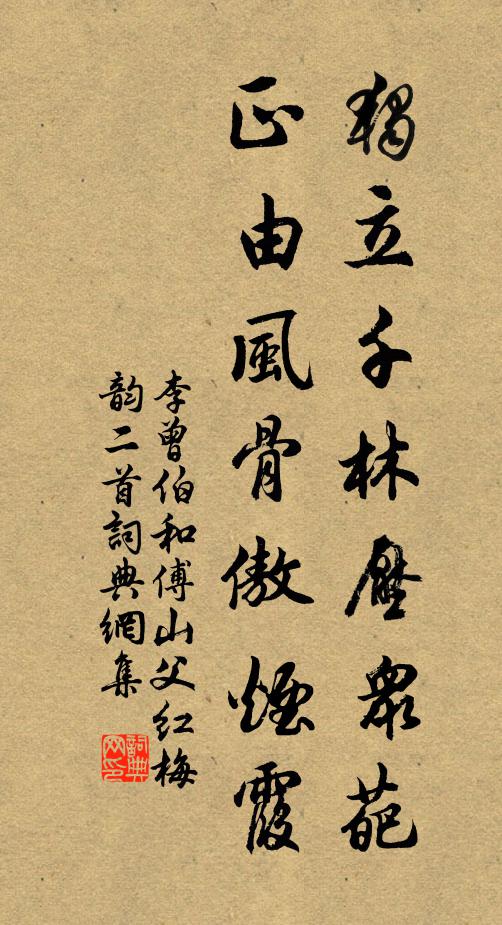 獨立千林壓眾葩
正由風骨傲煙霞
李曾伯和傅山父紅梅
韵二首詞典網集
詞典
网印